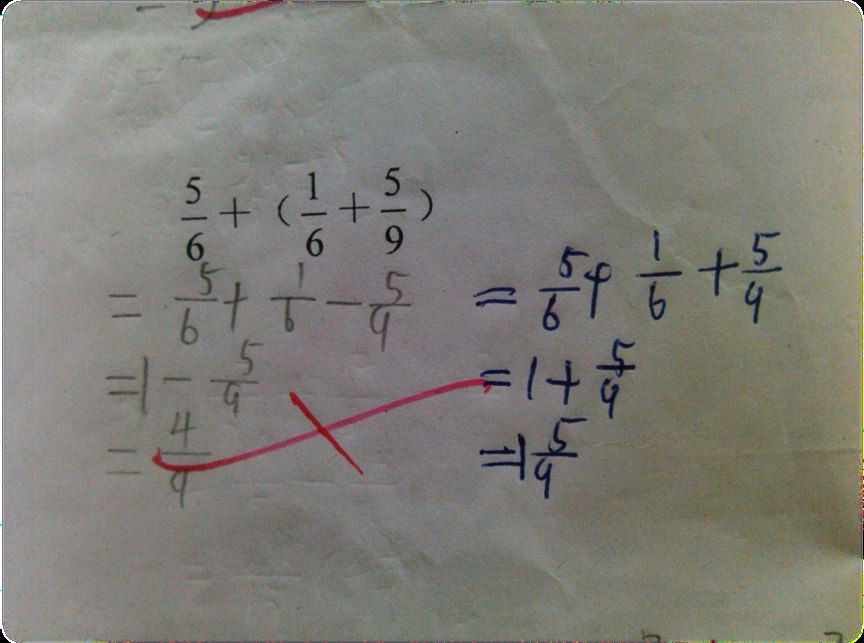 5/6 + ( 1/6 + 5/9 )
= 5/6 + 1/6 - 5/9
= 1 - 5/9
= 4/9
= 5/6 + 1/6 + 5/9
= 1 + 5/9
= 1 5/9